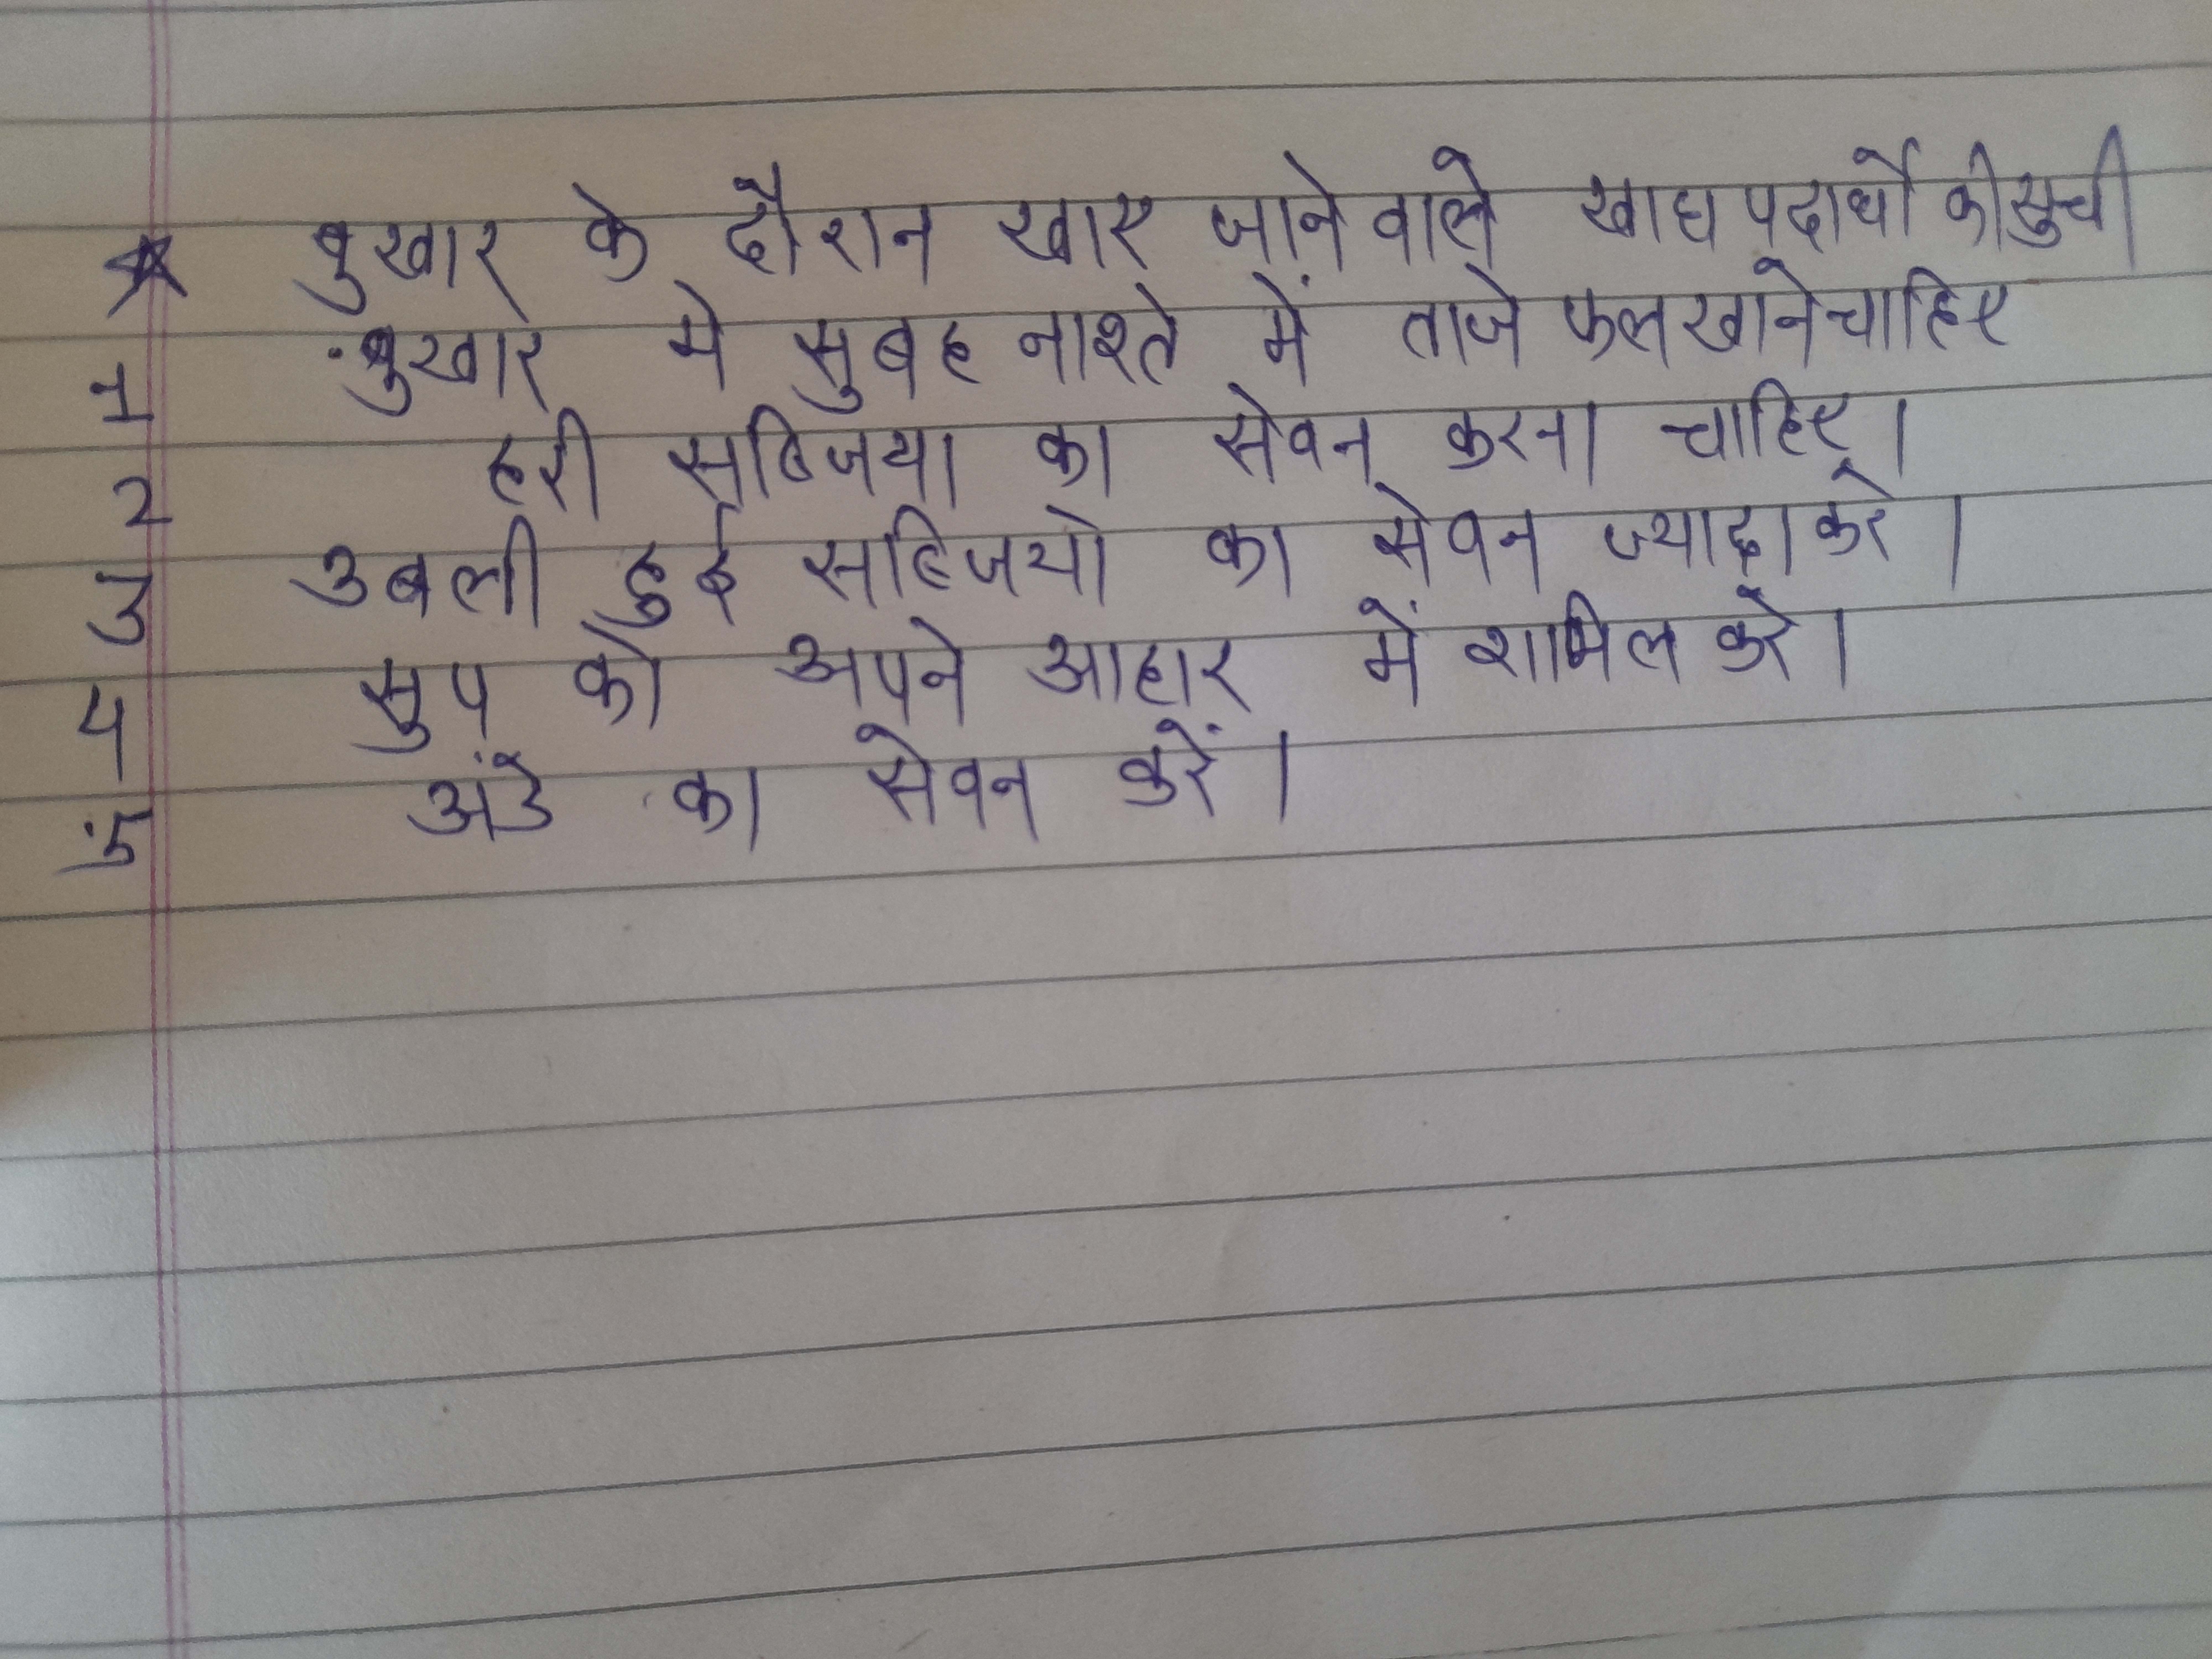 ★ बुखार के दौरान खाए जाने वाले खाद्य पदार्थो की सुची
1 बुखार मे सुबह नाश्ते में ताजे फल खाने चाहिए
2 हरी सब्जिया का सेवन करना चाहिए।
3 उबली हुई सब्जियो का सेवन ज्यादा करे।
4 सुप को अपने आहार में शामिल करे।
5 अंडे का सेवन करें।